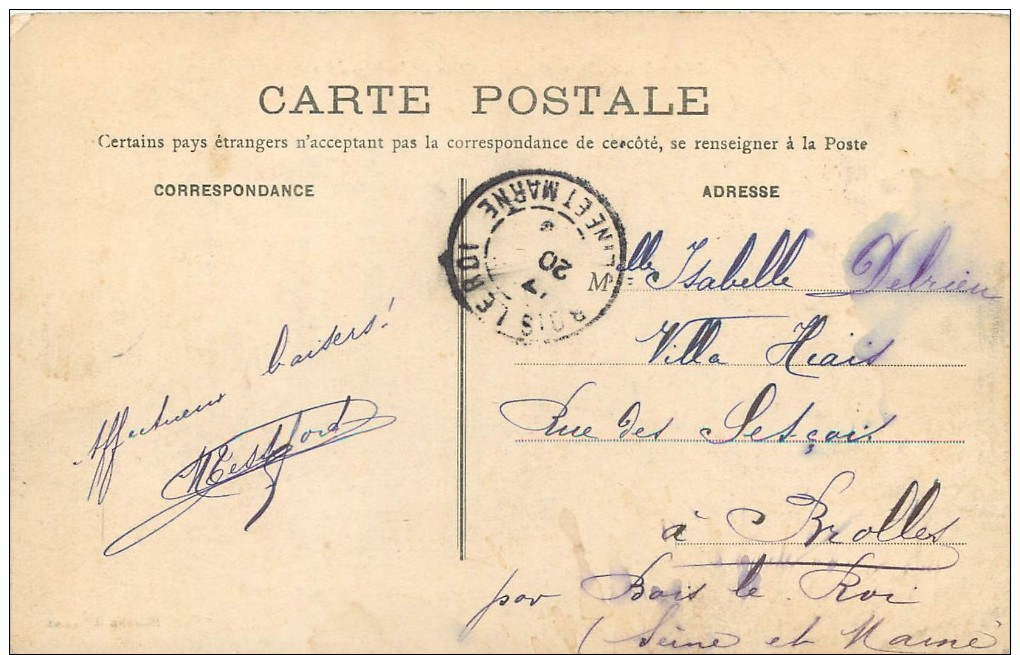 CARTE POSTALE
Certains pays étrangers n'acceptent pas la correspondance de ce côté, se renseigner à la Poste
CORRESPONDANCE
ADRESSE
BOIS LE ROI
SEINE ET MARNE
20
Affectueux baisers!
Mlle Isabelle Delrieu
Villa Hiais
Rue des
à Brolles
par Bois le Roi
(Seine et Marne